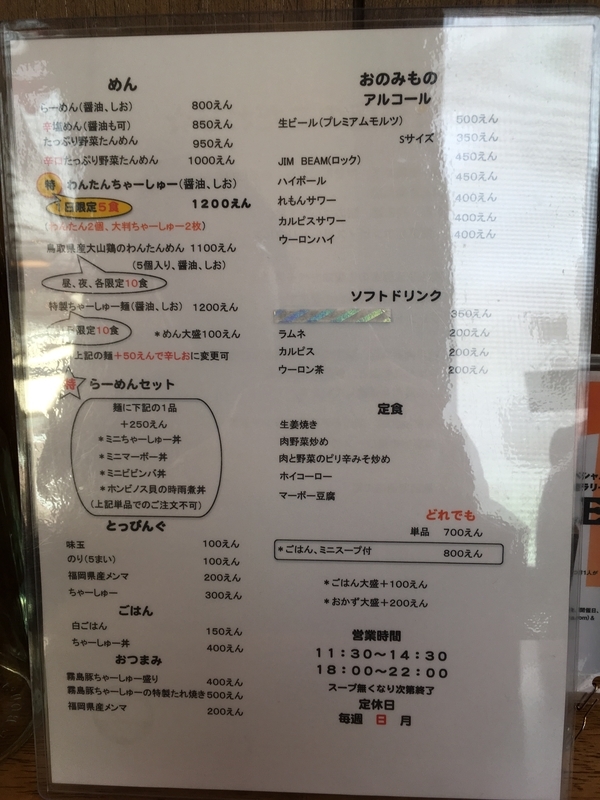 めん
らーめん(醤油、しお) 800えん
辛塩めん(醤油も可) 850えん
たっぷり野菜たんめん 950えん
辛口たっぷり野菜たんめん 1000えん
特 わんたんちゃーしゅー(醤油、しお)
1日限定5食 1200えん
(わんたん2個、大判ちゃーしゅー2枚)
鳥取県産大山鶏のわんたんめん 1100えん
(5個入り、醤油、しお)
昼、夜、各限定10食
特製ちゃーしゅー麺(醤油、しお) 1200えん
限定10食 *めん大盛100えん
上記の麺+50えんで辛しおに変更可
特 らーめんセット
麺に下記の1品
+250えん
*ミニちゃーしゅー丼
*ミニマーボー丼
*ミニビビンバ丼
*ホンビノス貝の時雨煮丼
(上記単品でのご注文不可)
とっぴんぐ
味玉 100えん
のり(5まい) 100えん
福岡県産メンマ 200えん
ちゃーしゅー 300えん
ごはん
白ごはん 150えん
ちゃーしゅー丼 400えん
おつまみ
霧島豚ちゃーしゅー盛り 400えん
霧島豚ちゃーしゅーの特製たれ焼き 500えん
福岡県産メンマ 200えん
おのみもの
アルコール
生ビール(プレミアムモルツ) 500えん
Sサイズ 350えん
JIM BEAM(ロック) 450えん
ハイボール 450えん
れもんサワー 400えん
カルピスサワー 400えん
ウーロンハイ 400えん
ソフトドリンク
350えん
ラムネ 200えん
カルピス 200えん
ウーロン茶 200えん
定食
生姜焼き
肉野菜炒め
肉と野菜のピリ辛みそ炒め
ホイコーロー
マーボー豆腐
どれでも
単品 700えん
*ごはん、ミニスープ付 800えん
*ごはん大盛+100えん
*おかず大盛+200えん
営業時間
11:30~14:30
18:00~22:00
スープ無くなり次第終了
定休日
毎週 日 月